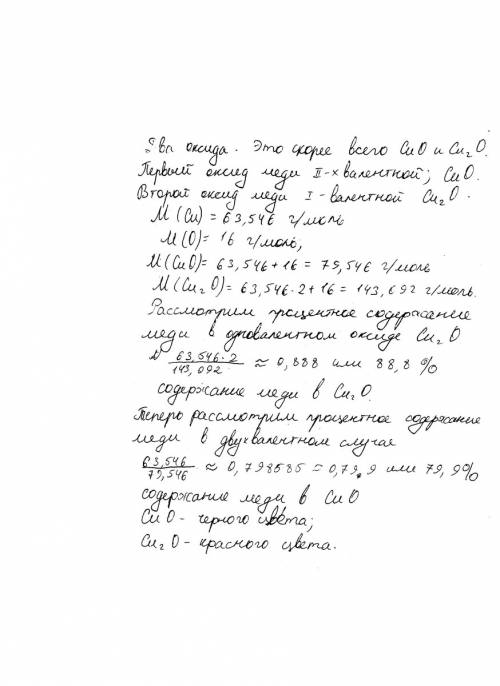 Два оксида. Это скорее всего CuO и Cu₂O.
Первый оксид меди II-х валентной; CuO.
Второй оксид меди I - валентной Cu₂O.
M(Cu) = 63,546 г/моль
M(O) = 16 г/моль,
M(CuO) = 63,546 + 16 = 79,546 г/моль
M(Cu₂O) = 63,546·2 + 16 = 143,092 г/моль.
Рассмотрим процентное содержание
меди в одновалентном оксиде Cu₂O
63,546·2 / 143,092 ≈ 0,888 или 88,8%
содержание меди в Cu₂O.
Теперь рассмотрим процентное содержание
меди в двухвалентном случае
63,546 / 79,546 ≈ 0,798585 = 0,79,9 или 79,9%
содержание меди в CuO
CuO - черного цвета;
Cu₂O - красного цвета.